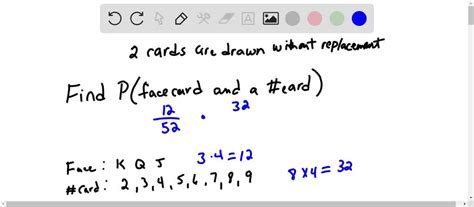 2 cards are drawn without replacement
Find P(face card and a #card)
12/52 · 32
Face : K Q J 3·4=12
#card : 2,3,4,5,6,7,8,9 8×4=32